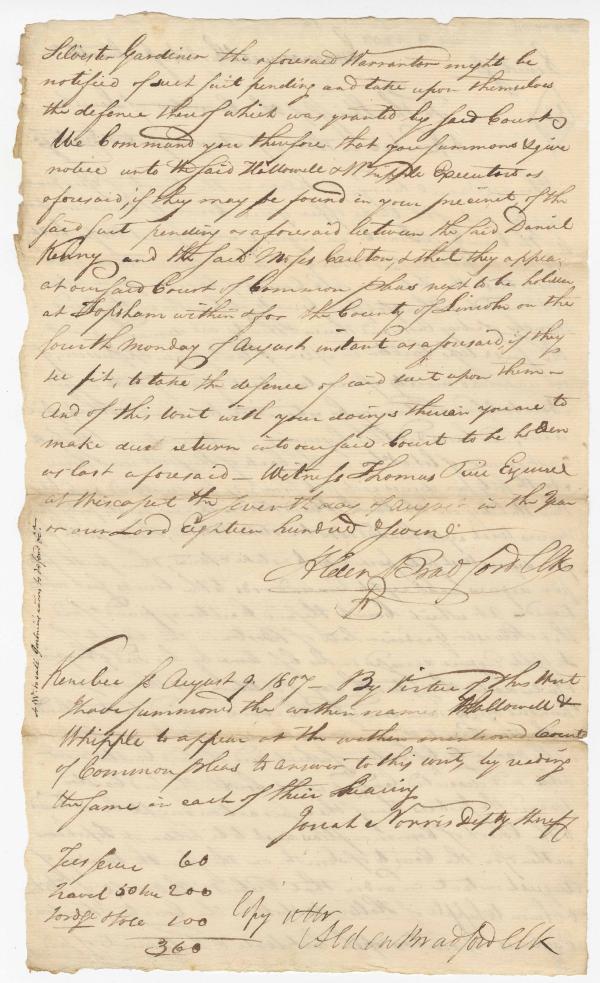 Silvester Gardiner the aforesaid Warrantor might be
notified of such suit pending and take upon themselves
the defence thereof which was granted by said Court
We Command you therefore that you summons & give
notice unto the said Hallowell & Whipple Executors as
aforesaid, if they may be found in your precinct, of the
said suit pending as aforesaid between the said Daniel
Kenny and the said Moses Carlton, & that they appear
at our said Court of Common pleas next to be holden
at Topsham within & for the County of Lincoln on the
fourth Monday of August instant as aforesaid, if they
see fit, to take the defence of said suit upon them –
And of this Writ with your doings therein you are to
make due return into our said Court to be holden
as last aforesaid – Witness Thomas Rice Esquire
at Wiscasset the seventh day of August in the Year
of our Lord Eighteen hundred & seven
Alden Bradford Clk
A Writ to call Gardiners to defend &c
Kenebec ss August 9. 1807 – By Virtue of this Writ
I have summoned the within named Hallowell &
Whipple to appear at the within mentioned Court
of Common Pleas to answer to this writ, by reading
the same in each of their hearing
Josiah Norris Depty Sheriff
Fees serve 60
Travel 50 200
100
360
Copy Attr
Alden Bradford Clk